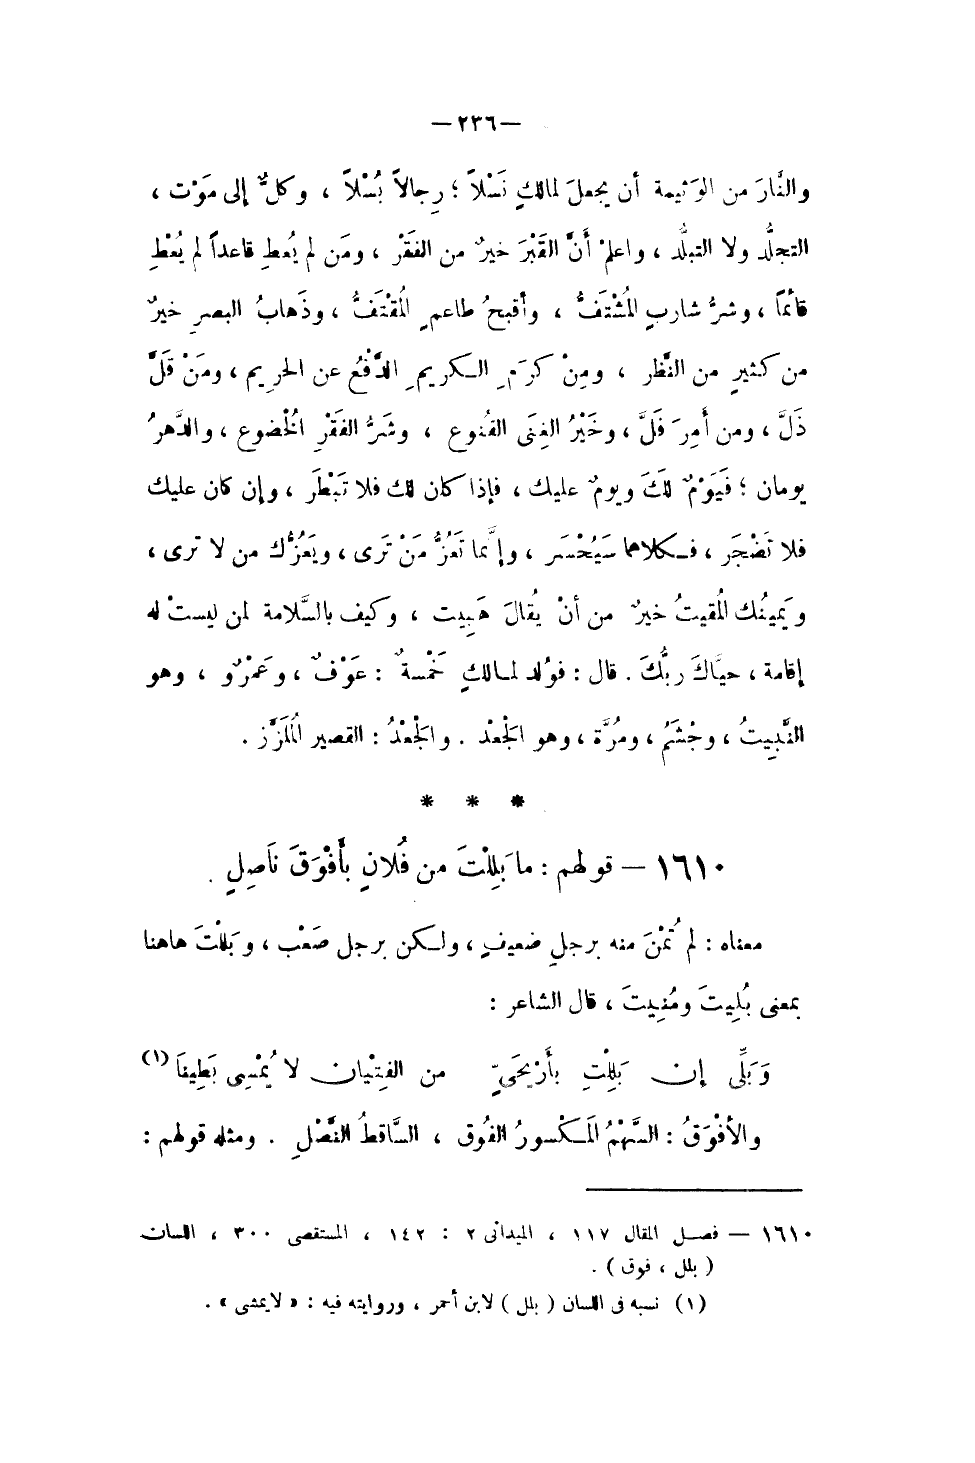 —٢٣٦—
والنَّارَ من الوَثيمة أن يجعلَ لمالكٍ نَسْلاً ؛ رِجالاً بُسْلاً ، وكلٌّ إلى مَوْت ،
التجلُّد ولا التبلُّد ، واعلمْ أنَّ القَبْرَ خيرٌ من الفَقَرْ ، ومَن لم يُعطِ قاعداً لم يُعْطِ
قائمًا ، وشرُّ شاربٍ المُشْتَفُّ ، وأقبحُ طاعمٍ المُقْتَفُّ ، وذَهابُ البصرِ خيرٌ
من كثيرٍ من النَّظر ، ومِنْ كرَمِ الكريمِ الدَّفْعُ عن الحرِيم ، ومَنْ قَلَّ
ذَلَّ ، ومن أَمِرَ فَلَّ ، وخَيْرُ الغِنَى القُنوع ، وشَرُّ الفَقْرِ الخُضوع ، والدَّهرُ
يومان ؛ فَيَوْمٌ لكَ ويومٌ عليك ، فإذا كان لك فلا تَبْطَر ، وإن كان عليك
فلا تَضْجَر ، فكلاهما سَيُحْسَر ، وإنَّما تَعُزُّ مَنْ تَرى ، ويَعُزُّك من لا ترى ،
ويَمينُك المُقيتُ خيرٌ من أنْ يُقالَ هَبِيت ، وكيف بالسَّلامة لمن ليستْ له
إقامة ، حيَّاكَ ربُّكَ . قال : فوُلد لمالكٍ خَمْسةٌ : عَوْفٌ ، وعَمْرٌو ، وهو
النَّبِيتُ ، وجُشَمُ ، ومُرَّة ، وهو الجَعْد . والجَعْدُ : القصير المُلَزَّز .
* * *
١٦١٠ — قولهم : ما بَلِلْتَ من فُلانٍ بأَفْوَقَ نَاصِلٍ .
معناه : لم تُمْنَ منه برجلٍ ضعيفٍ ، ولكن برجل صَعْب ، وبَلِلْتَ هاهنا
بمعنى بُلِيتَ ومُنِيتَ ، قال الشاعر :
وَبَلِّى إن بَلِلْتِ بأَرْيَحَيٍّ من الفِتْيان لا يُمْسِى بَطِينَا (١)
والأفْوَقُ : السَّهْمُ المَكْسورُ الفُوق ، السَّاقطُ النَّصْلِ . ومثله قولهم :
١٦١٠ — فصل المقال ١١٧ ، الميدانى ٢ : ١٤٢ ، المستقصى ٣٠٠ ، اللسان
( بلل ، فوق ) .
(١) نسبه فى اللسان ( بلل ) لابن أحمر ، وروايته فيه : « لا يمشى » .